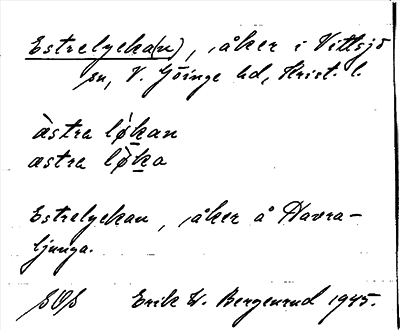 Estrelycka(n), åker i Vittsjö
sn, V. Göinge hd, Krist. l.
àstra lø̀kan
astra lø̀ka
Estrelyckan, åker å Havra-
ljunga.
Erik W. Bergenrud 1945.